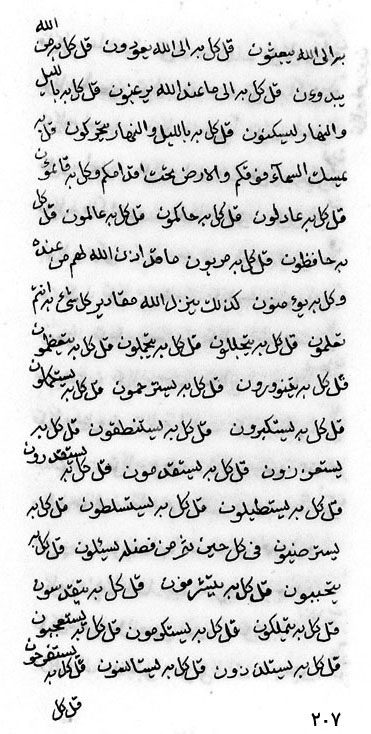 الله
به الى الله يبعثون قل كل به الى الله يعودون قل كل به من
يبدؤن قل كل به الى ما عند الله يرغبون قل كل به بالليل
والنهار ليسكنون قل كل به بالليل والنهار يتحركون قل به
يمسك السمآء فوقكم والارض تحت اقدامكم وكل به قائمون
قل كل به عادلون قل كل به حاكمون قل كل به عالمون قل كل
به حافظون قل كل به مربون ما قد اذن الله لهم من عنده
وكل به يؤمنون كذلك ينزل الله مقادير كل شئ به انتم
تعلمون قل كل به يتجللون قل كل به يتجملون قل كل به يتعظمون
قل كل به يتنورون قل كل به يسترحمون قل كل به يستكملون
قل كل به يستكبرون قل كل به يستنطقون قل كل به
يستعززون قل كل به يستقدمون قل كل به يستقدرون
قل كل به يستطيلون قل كل به يستسلطون قل كل به
يسترضيون فى كل حين ثم من فضله ليسئلون قل كل به
يتحببون قل كل به يتشرفون قل كل به يتقدسون
قل كل به يتملكون قل كل به يستكرمون قل كل به يستعجبون
قل كل به يستلذذون قل كل به يستأنسون قل كل به يستفرحون
قل كل
٢٠٧